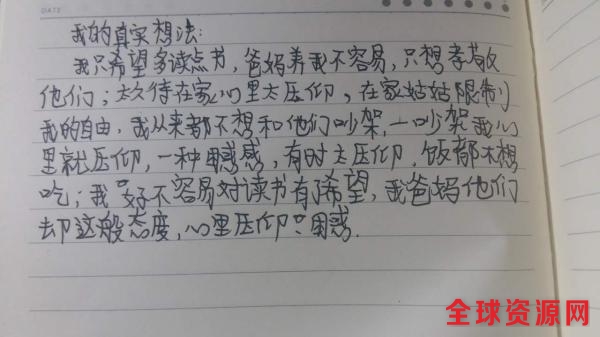 DATE
我的真实想法:
我只希望多读点书,爸妈养我不容易,只想孝敬
他们;太久待在家心里太压仰,在家姑姑限制
我的自由,我从来都不想和他们吵架,一吵架我心
里就压仰,一种困惑感,有时太压仰,饭都不想
吃;我"好不容易对读书有了希望,我爸妈他们
却这般态度,心里压仰":困惑.
全球资源网